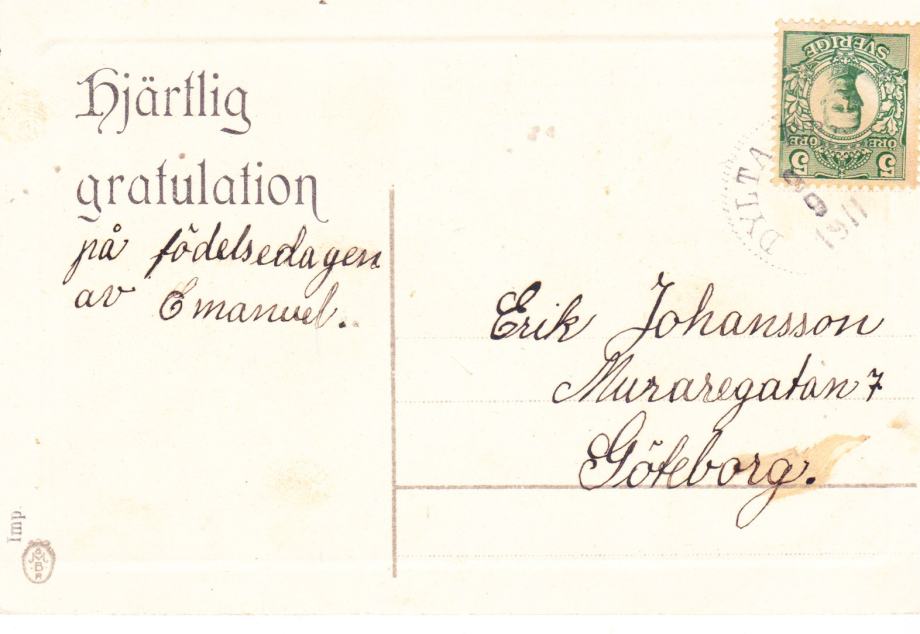 Hjärtlig
gratulation
på födelsedagen
av Emanuel.
SVERIGE
ÖRE ÖRE
5 5
DYLTA
1911
Erik Johansson
Muraregatan 7
Göteborg.
Imp.